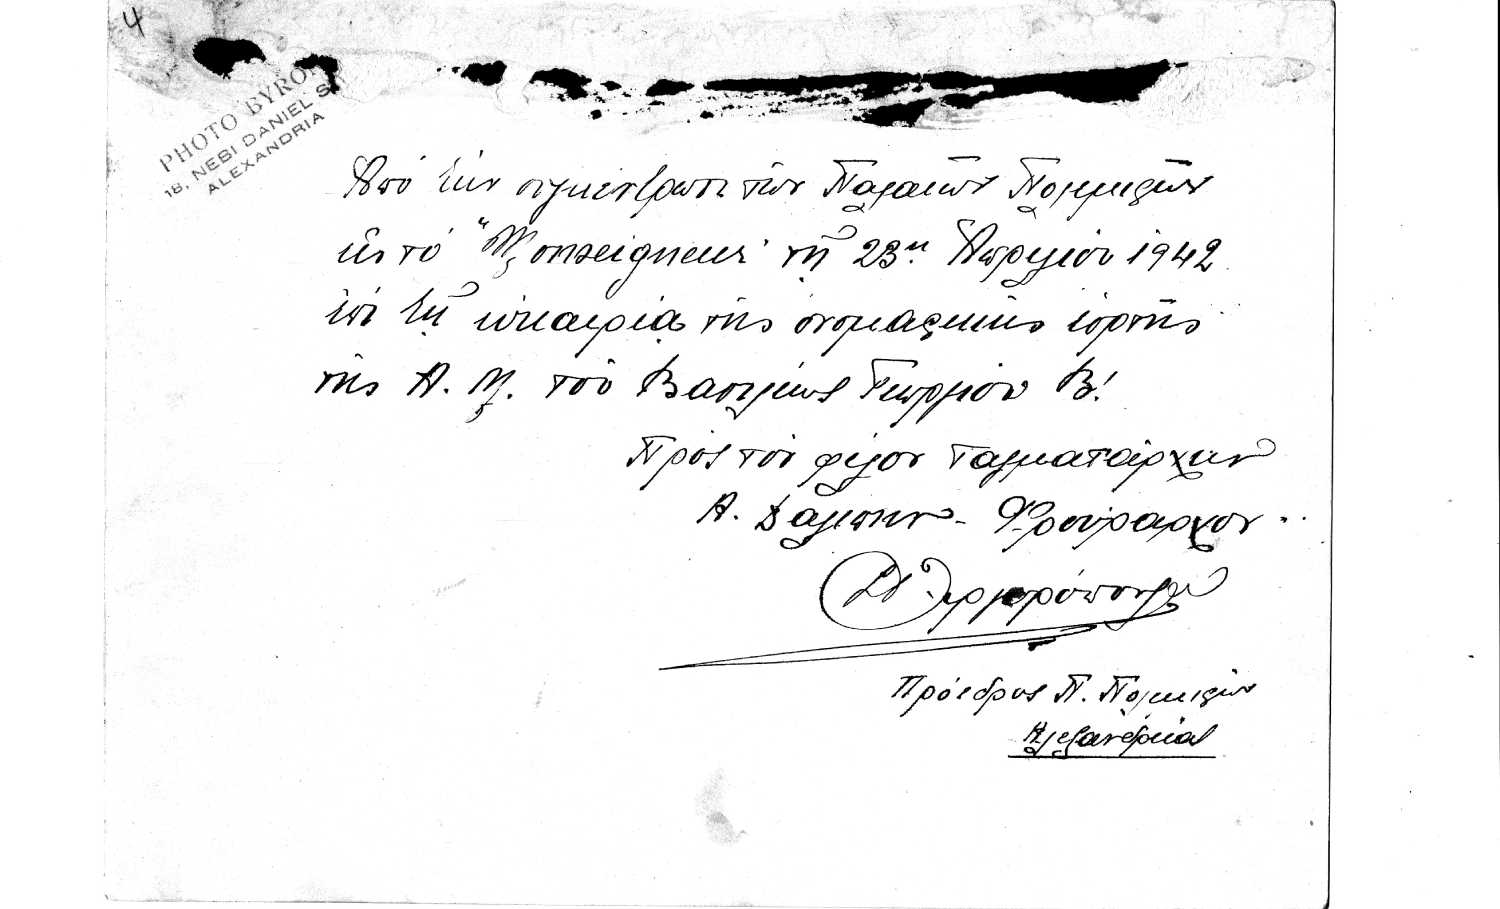 4
PHOTO BYRO
18, NEBI DANIEL S
ALEXANDRIA
Ἀπό τήν συγκέντρωσι τῶν Παλαιῶν Πολεμιστῶν
εἰς τό "Monseigneur" τῇ 23ῃ Ἀπριλίου 1942
ἐπί τῇ εὐκαιρίᾳ τῆς ὀνομαστικῆς ἑορτῆς
τῆς Α. Μ. τοῦ Βασιλέως Γεωργίου Β!
Πρός τόν φίλον Ταγματάρχην
Α. - Φρούραρχον
Πρόεδρος Π. Πολεμιστῶν
Ἀλεξανδρείας